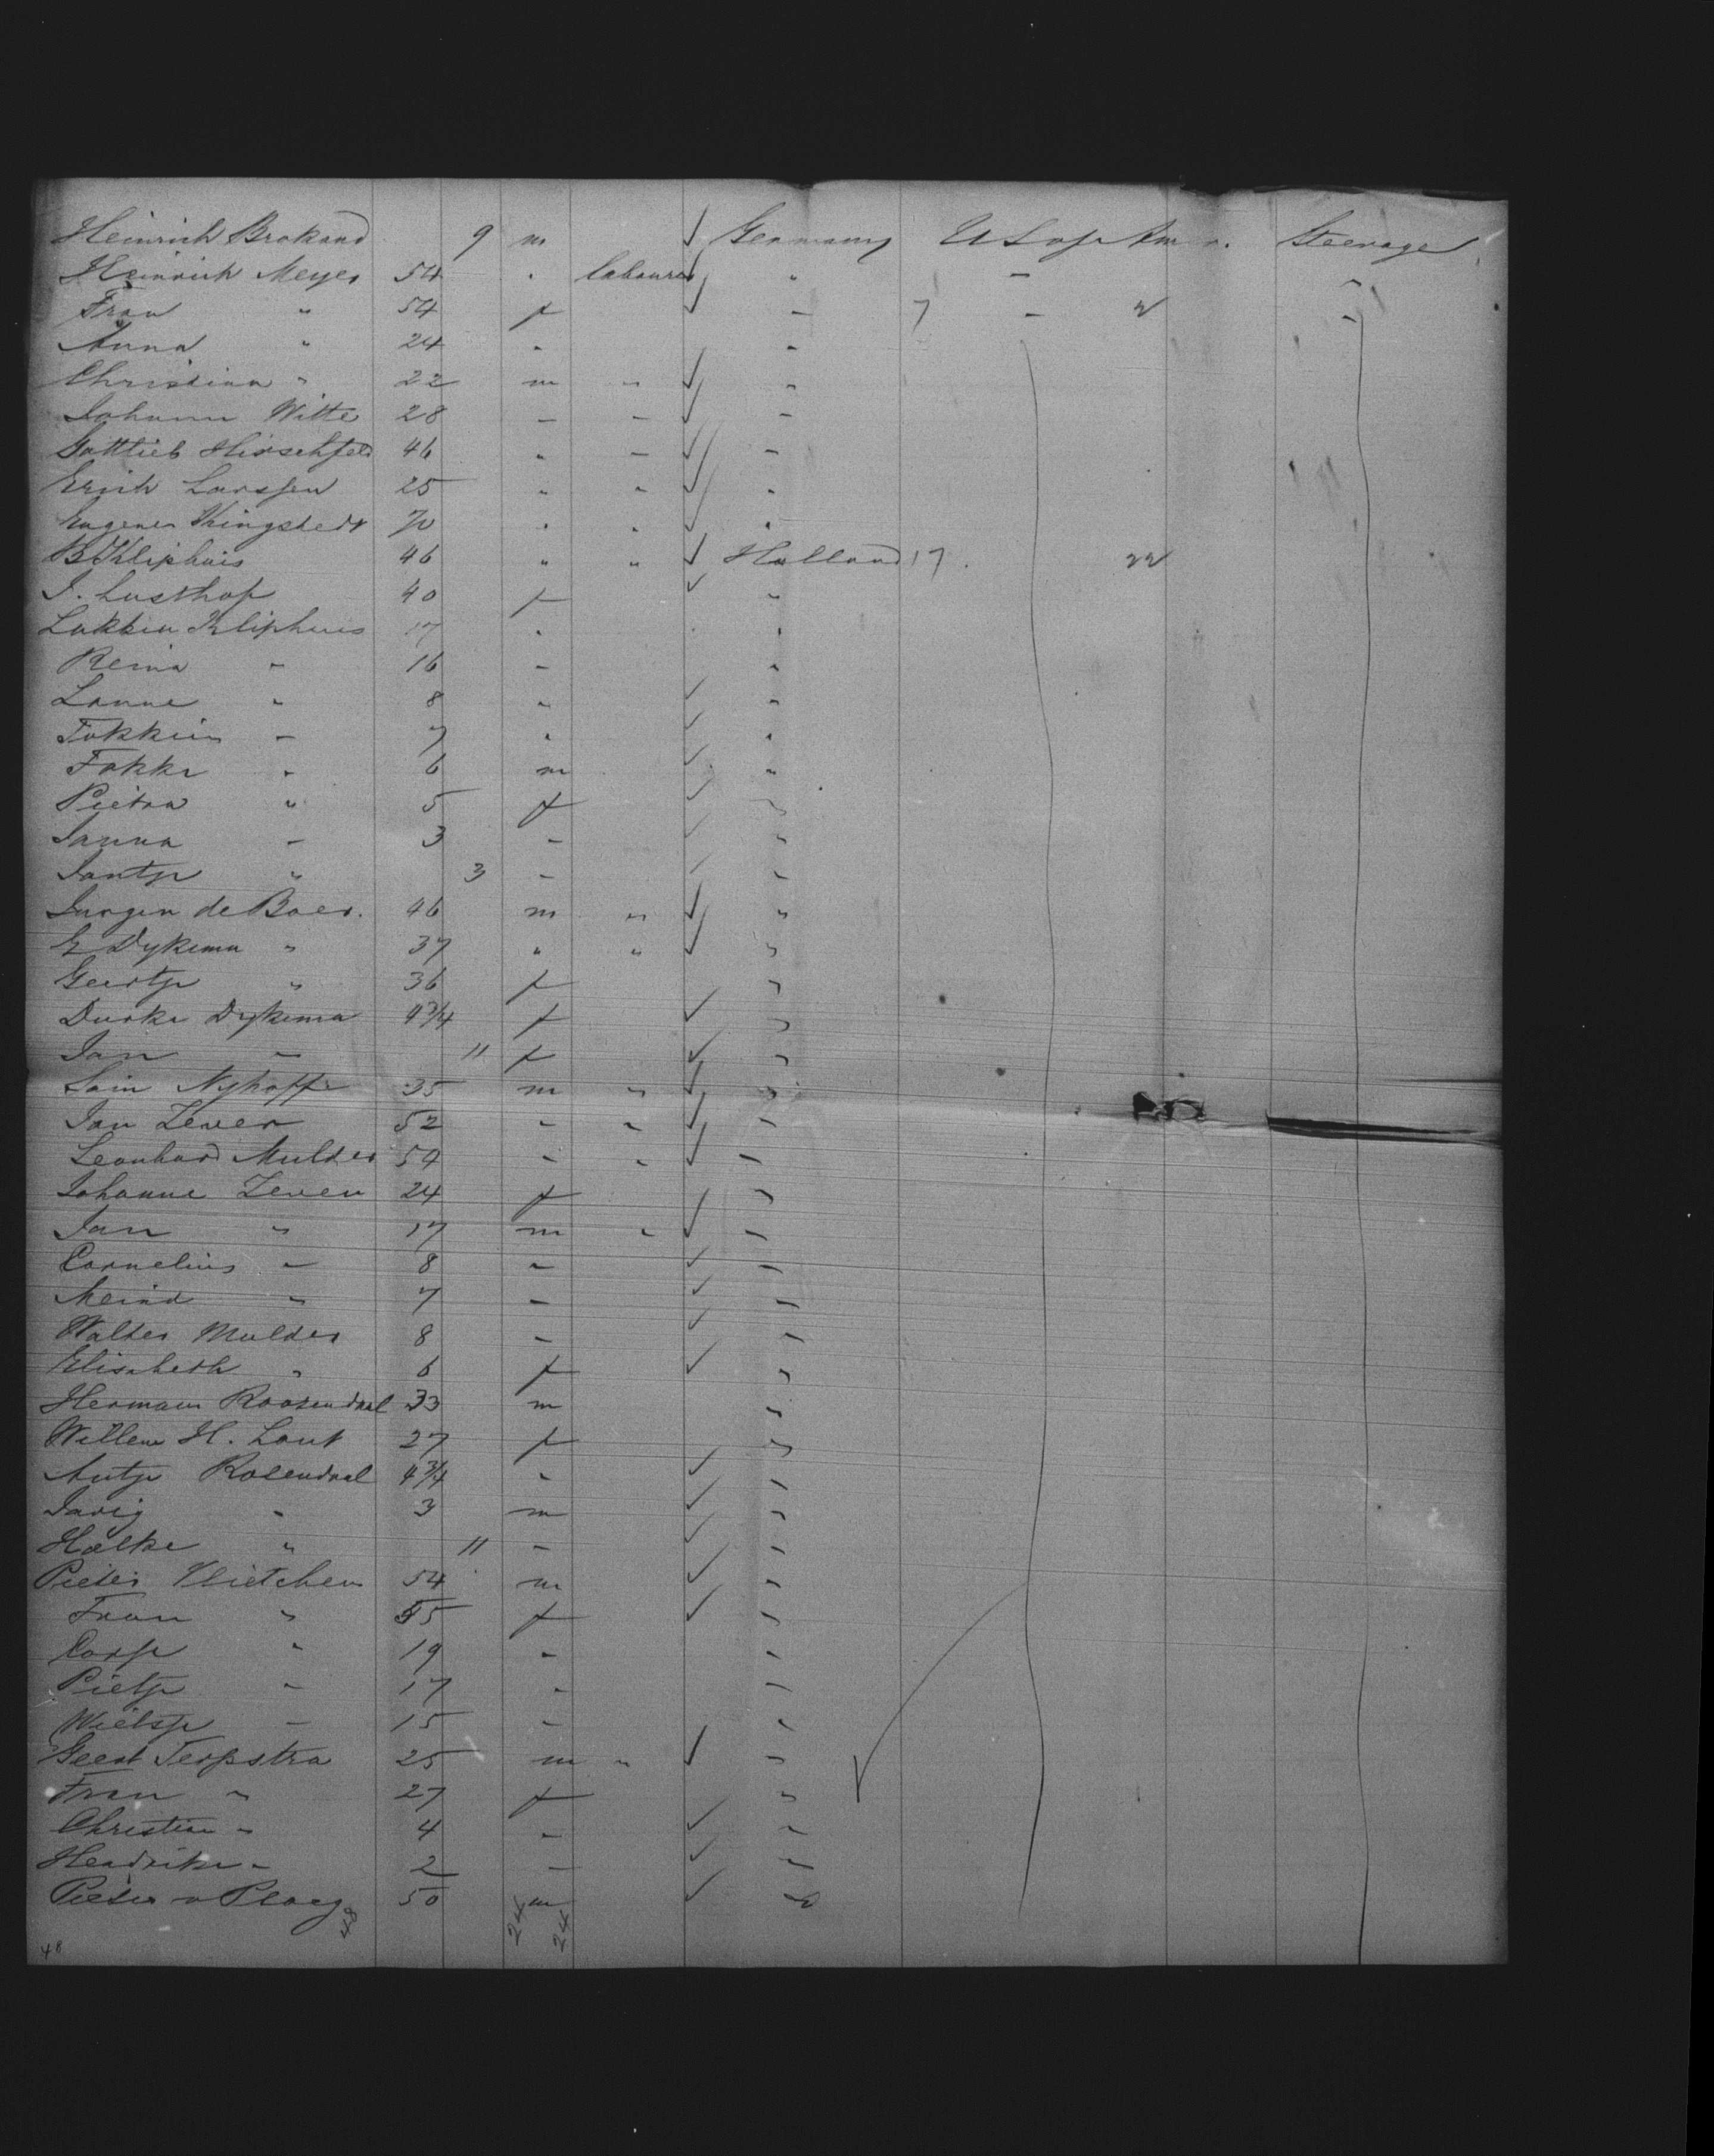 Heinrich Brokand 9 m ✓ Germany U S of Am. Steerage
Heinrich Meyer 54 " labourer ✓ " - "
Frau " 54 f ✓ - 7 - 2 -
Anna " 24 " "
Christian " 22 m " ✓ "
Johann Witte 28 - - ✓ -
Gottlieb Hirschfeld 46 " - ✓ -
Erich Larssen 25 " " ✓ "
Eugenes Kingstedt 70 " " ✓ "
B Kliphuis 46 " " ✓ Holland 17 22
J. Lusthof 40 f ✓ "
Lukkien Kliphuis 17 " "
Reina " 16 - "
Lanne " 8 " ✓ "
Fokkien - 7 " ✓ "
Fokke " 6 m ✓ "
Pietra " 5 f ✓ "
Janna - 3 - ✓ "
Jantje " 3 - ✓ "
Jurgen de Boer. 46 m " ✓ "
E Dykema " 37 " " ✓ "
Geertje " 36 f "
Durke Dykema 4 3/4 f ✓ "
Jan - 11 f ✓ "
Sain Nyhoff 35 m " ✓ "
Jan Zeven 52 - " ✓ -
Leonhard Mulder 54 - " ✓ -
Johanne Zeven 24 f "
Jan " 17 m " ✓ -
Cornelius - 8 - ✓ -
Meind " 7 - ✓ -
Walter Mulder 8 - ✓ -
Elisabeth " 6 f ✓ "
Hermann Roosendaal 33 m "
Willem H. Lout 27 f "
Antje Rosendaal 4 3/4 " ✓ -
Jarig " 3 m ✓ "
Halke " 11 - ✓ -
Pieter Vlietchen 54 m ✓ -
Frau " 55 f ✓ -
" 19 - -
Pietje " 17 " -
Wietsje - 15 - "
Geert Terpstra 25 m " ✓ "
Frau " 27 f "
Christian " 4 - ✓ "
Hendrike " 2 - ✓ "
Pieter v Ploeg 50 m ✓ "
48 24 24
48